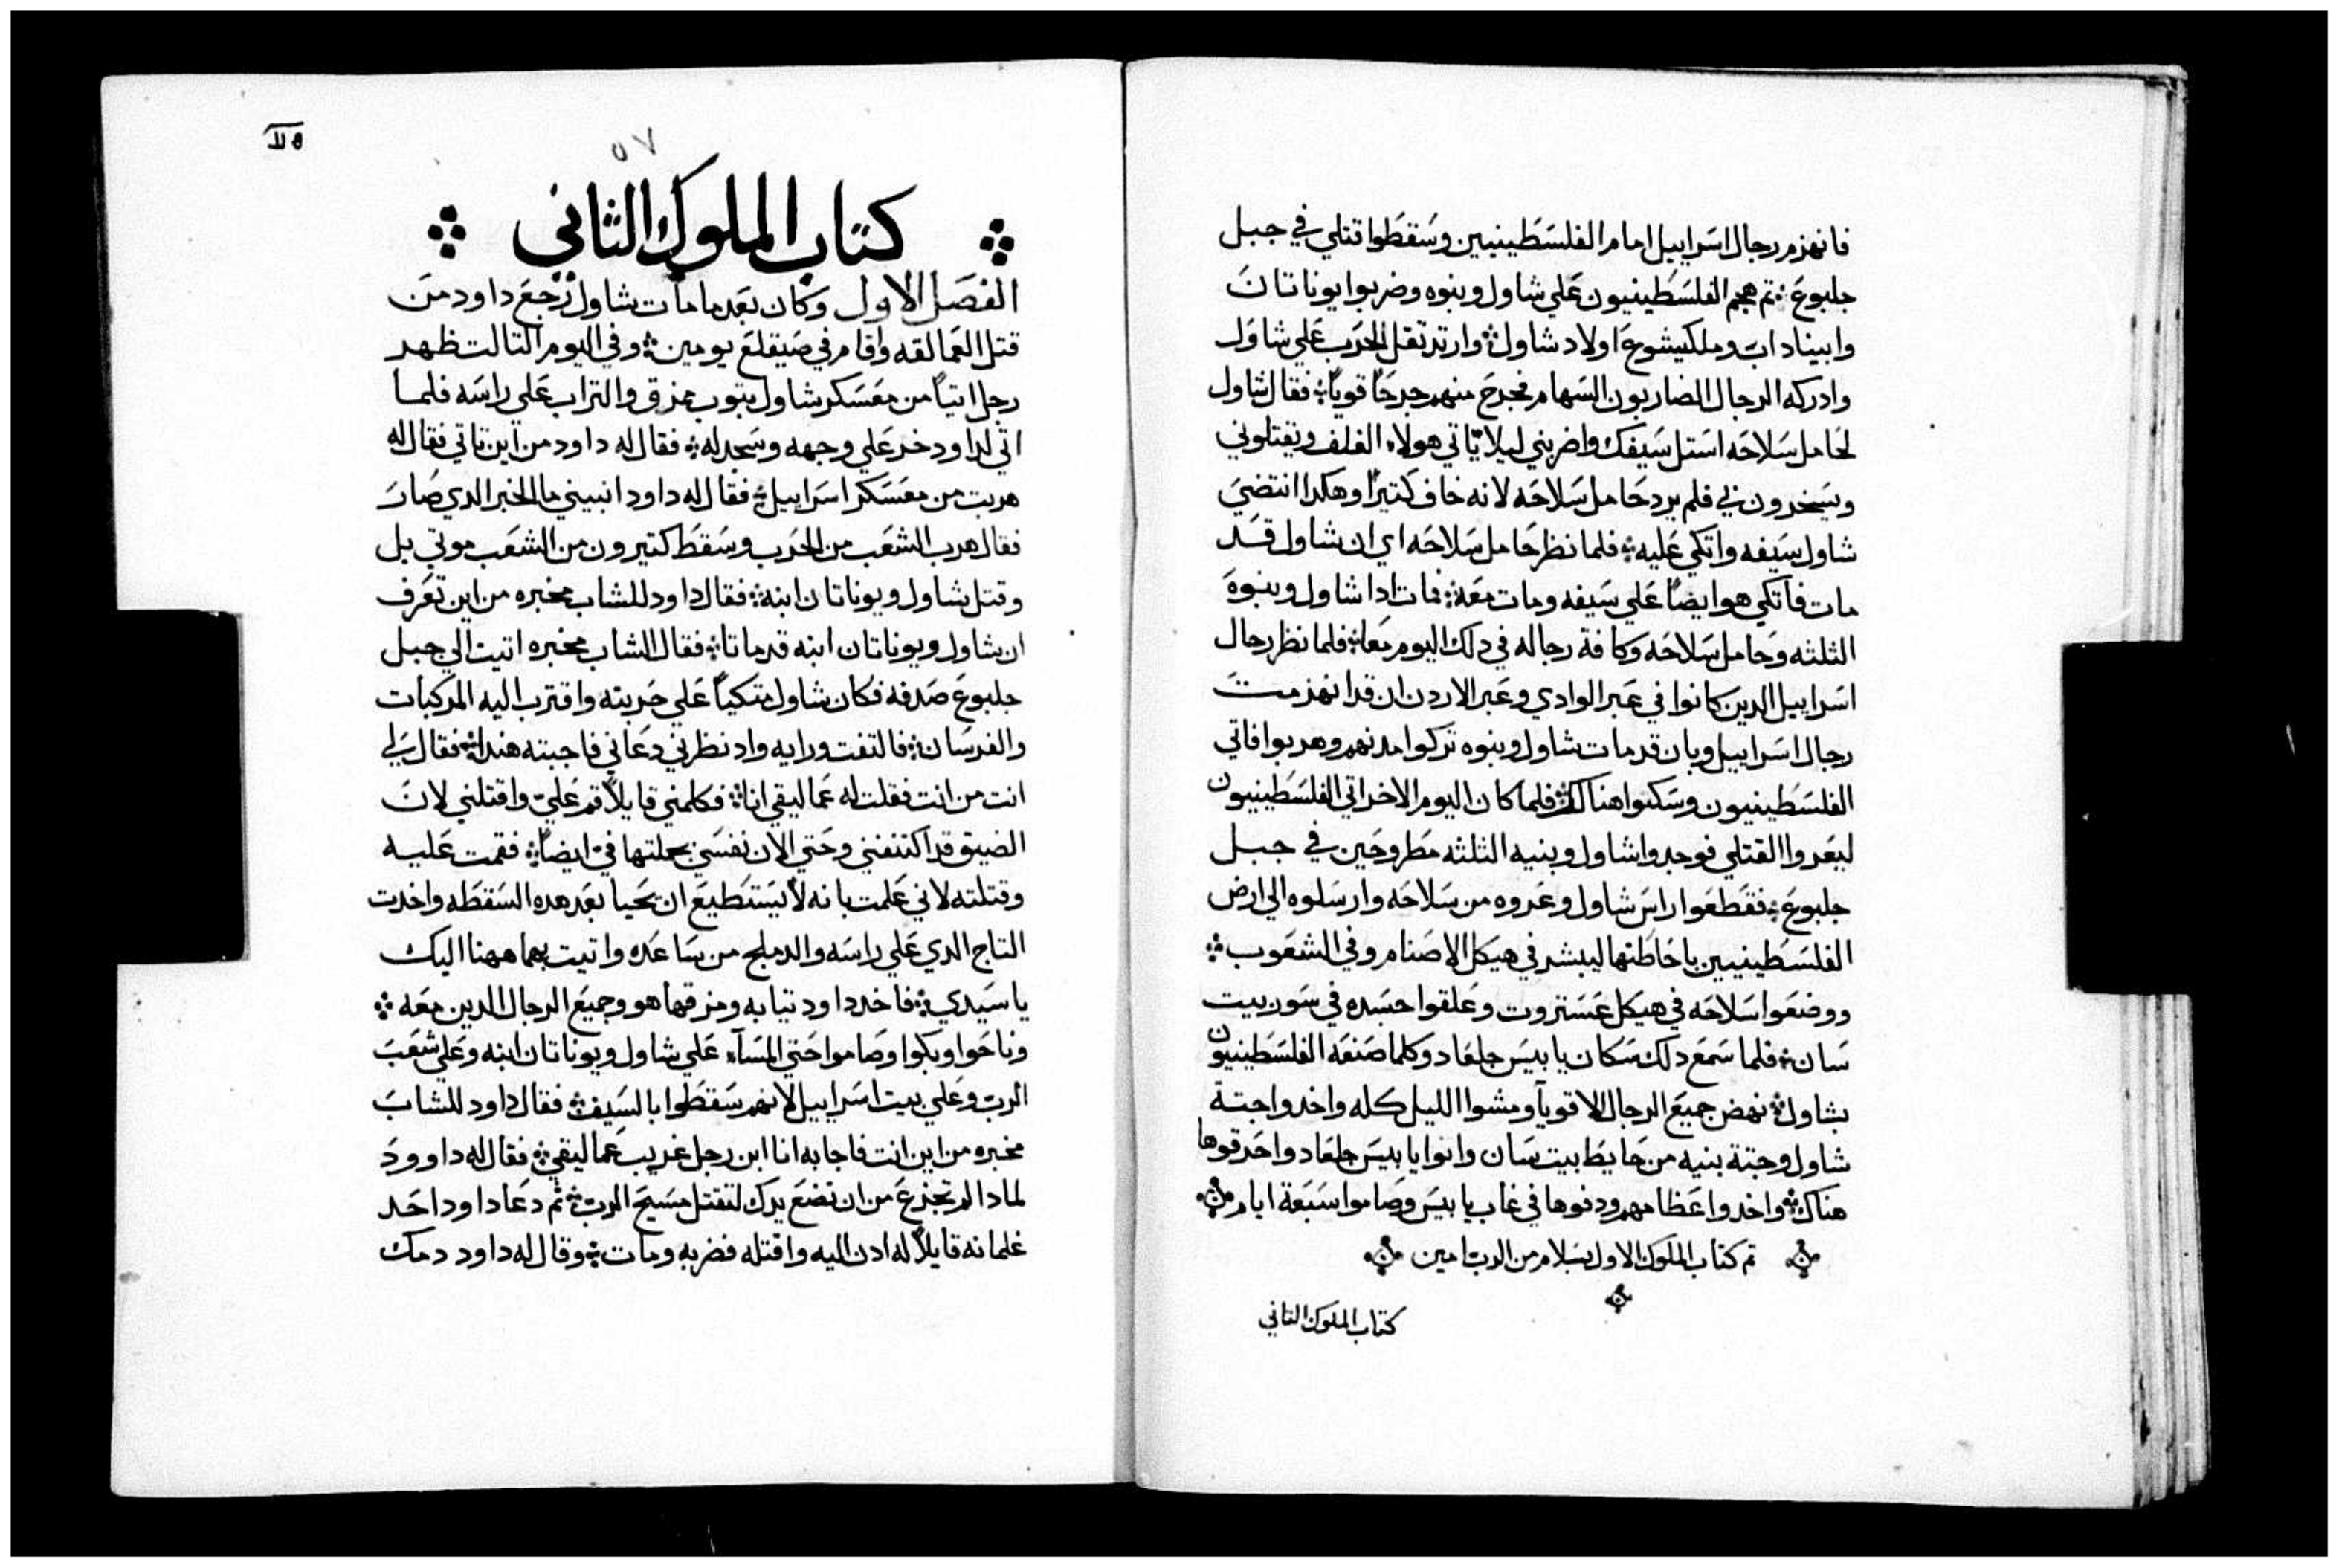 فانهزم رجال اسراييل امام الفلسطينيين وسقطوا قتلي في جبل
جلبوع ۞ تم هجم الفلسطينيون علي شاول وبنوه وضربوا يوناتان
وابيناداب وملكيشوع اولاد شاول ۞ وارتد تقل الحرب علي شاول
وادركه الرجال الضاربون السهام فجرح منهم جرحاً قوياً ۞ فقال شاول
لحامل سلاحه استل سيفك واضربني ليلا ياتي هولاء الغلف ويقتلوني
ويسخرون بي فلم يرد حامل سلاحه لانه خاف كتيراً وهكدا انتضي
شاول سيفه واتكي عليه ۞ فلما نظر حامل سلاحه اي ان شاول قد
مات فاتكي هو ايضاً علي سيفه ومات معه ۞ فمات ادا شاول وبنوه
الثلثه وحامل سلاحه وكافة رجاله في دلك اليوم معا ۞ فلما نظر رجال
اسراييل الدين كانوا في عبر الوادي وعبر الاردن ان قد انهزمت
رجال اسراييل وبان قد مات شاول وبنوه تركوا مدنهم وهربوا فاتي
الفلسطينيون وسكنوا هناك ۞ فلما كان اليوم الاخر اتي الفلسطينيون
ليعروا القتلي فوجدوا شاول وبنيه الثلثه مطروحين في جبل
جلبوع ۞ فقطعوا راس شاول وعروه من سلاحه وارسلوه الي ارض
الفلسطينيين باحاطتها ليبشر في هيكل الاصنام وفي الشعوب ۞
ووضعوا سلاحه في هيكل عستروت وعلقوا جسده في سور بيت
سان ۞ فلما سمع دلك سكان يابيس جلعاد وكلما صنعه الفلسطينيون
بشاول ۞ نهض جميع الرجال الاقويآ ومشوا الليل كله واخدوا جتة
شاول وجتة بنيه من حايط بيت سان واتوا يابيس جلعاد واحرقوها
هناك ۞ واخدوا عظامهم ودفنوها في غاب يابيس وصاموا سبعة ايام
تم كتاب الملوك الاول بسلام من الرب امين
كتاب الملوك التاني
٥٧
كتاب الملوك الثاني
الفصل الاول وكان بعد ما مات شاول رجع داود من
قتل العمالقه واقام في صيقلغ يومين ۞ وفي اليوم التالت ظهر
رجل اتياً من معسكر شاول بتوب ممزق والتراب علي راسه فلما
اتي لداود خر علي وجهه وسجد له ۞ فقال له داود من اين تاتي فقال له
هربت من معسكر اسراييل ۞ فقال له داود انبيني ما الخبر الدي صار
فقال هرب الشعب من الحرب وسقط كتيرون من الشعب موتي بل
وقتل شاول ويوناتان ابنه ۞ فقال داود للشاب مخبره من اين تعرف
ان شاول ويوناتان ابنه قد ماتا ۞ فقال الشاب مخبره اتيت الي جبل
جلبوع صدفه فكان شاول متكياً علي حربته واقترب اليه المركبات
والفرسان ۞ فالتفت ورايه واد نظرني دعاني فاجبته هندا ۞ فقال لي
انت من انت فقلت له عماليقي انا ۞ فكلمني قايلاً قم علي واقتلني لان
الضيق قد اكتنفني وحتي الان نفسي بجملتها في ايضاً ۞ فقمت عليه
وقتلته لاني علمت بانه لا يستطيع ان يحيا بعد هده السقطه واخدت
التاج الدي علي راسه والدملج من ساعده واتيت بهما ههنا اليك
يا سيدي ۞ فاخد داود تيابه ومزقها هو وجميع الرجال الدين معه ۞
وناحوا وبكوا وصاموا حتي المسآء علي شاول ويوناتان ابنه وعلي شعب
الرب وعلي بيت اسراييل لانهم سقطوا بالسيف ۞ فقال داود للشاب
مخبره من اين انت فاجابه انا ابن رجل غريب عماليقي ۞ فقال له داوود
لمادا لم تجزع من ان تضع يدك لتقتل مسيح الرب ۞ تم دعا داود احد
غلمانه قايلاً له ادن اليه واقتله فضربه ومات ۞ وقال له داود دمك